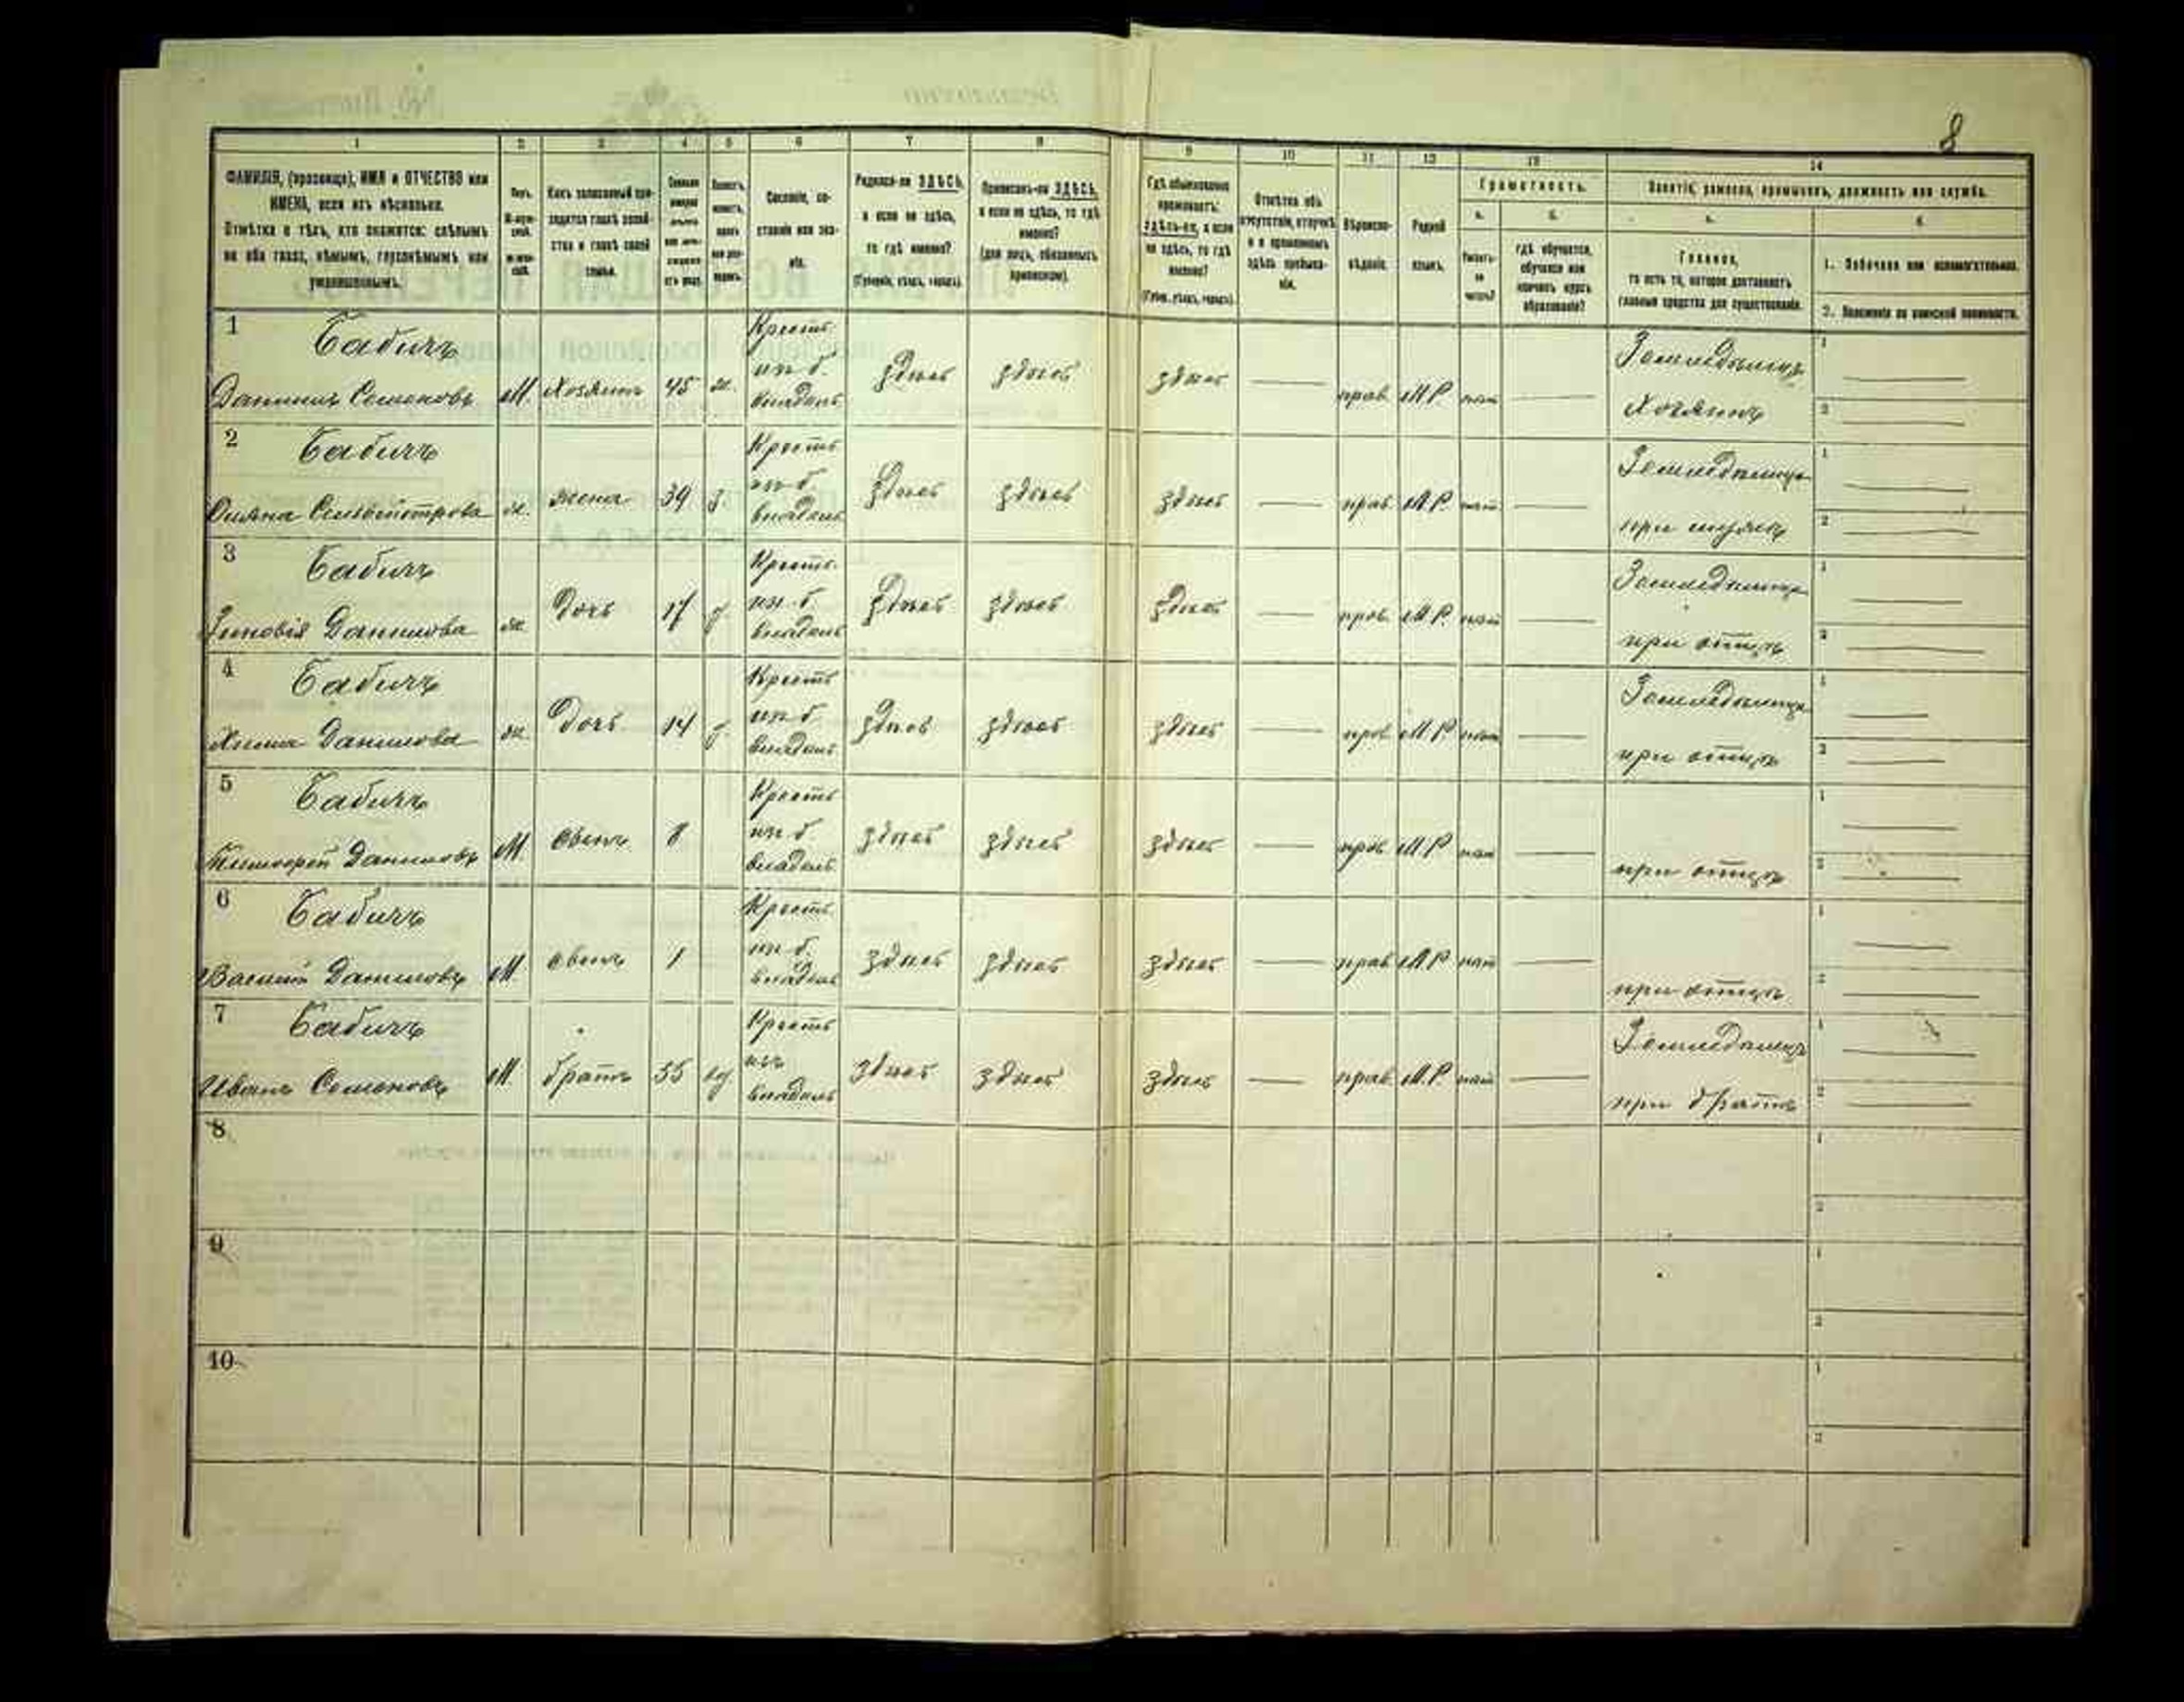 8
1 2 3 4 5 6 7 8 9 10 11 12 13 14
ФАМИЛІЯ, (прозвище), ИМЯ и ОТЧЕСТВО или
ИМЕНА, если ихъ нѣсколько.
Отмѣтка о тѣхъ, кто окажется: слѣпымъ
на оба глаза, нѣмымъ, глухонѣмымъ или
умалишеннымъ.
Полъ.
Какъ записанный при-
ходится главѣ хозяй-
ства и главѣ своей
семьи.
Сословіе, со-
стояніе или зва-
ніе.
Родился-ли ЗДѢСЬ,
а если не здѣсь,
то гдѣ именно?
(Губернія, уѣздъ, городъ).
Приписанъ-ли ЗДѢСЬ,
а если не здѣсь, то гдѣ
именно?
(для лицъ, обязанныхъ
припискою).
Гдѣ обыкновенно
проживаетъ:
здѣсь-ли, а если
не здѣсь, то гдѣ
именно?
(Губерн., уѣздъ, городъ).
Отмѣтка объ
отсутствіи, отлучкѣ
и о временномъ
здѣсь пребыва-
ніи.
Вѣроиспо-
вѣданіе.
Родной
языкъ.
Грамотность.
а. б.
Умѣетъ-
ли
читать?
гдѣ обучается,
обучался или
кончилъ курсъ
образованія?
Занятіе, ремесло, промыселъ, должность или служба.
а. б.
Главное,
то есть то, которое доставляетъ
главныя средства для существованія.
1. Побочное или вспомогательное.
2. Положеніе по воинской повинности.
1 Бабичъ
Даниилъ Семеновъ М. Хозяинъ 45 ж. Крестьянинъ б. владѣл здѣсь здѣсь здѣсь — прав. М.Р. нет — Земледѣлецъ
Хозяинъ
2 Бабичъ
ж. жена 39 з. Крестьян б. владѣл здѣсь здѣсь здѣсь — прав. М.Р. нет — Земледѣлица
при мужѣ
3 Бабичъ
Зиновія Данилова ж. дочь 17 д Крестьян б. владѣл здѣсь здѣсь здѣсь — прав. М.Р. нет — Земледѣлица
при отцѣ
4 Бабичъ
Данилова ж. дочь 14 д. Крестьян б. владѣл здѣсь здѣсь здѣсь — прав. М.Р. нет — Земледѣлица
при отцѣ
5 Бабичъ
Тимофей Даниловъ М. сынъ 8 Крестьян б. владѣл здѣсь здѣсь здѣсь — прав. М.Р. нет —
при отцѣ
6 Бабичъ
Василій Даниловъ М. сынъ 1 Крестьян б. владѣл здѣсь здѣсь здѣсь — прав. М.Р. нет —
при отцѣ
7 Бабичъ
Иванъ Семеновъ М. братъ 55 Крестьян владѣл здѣсь здѣсь здѣсь — прав. М.Р. нет — Земледѣлецъ
при братѣ
8
9
10